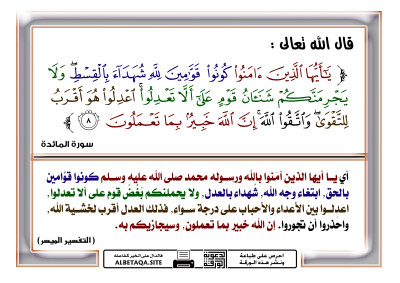 قال الله تعالى :
﴿ يَٰٓأَيُّهَا ٱلَّذِينَ ءَامَنُوا۟ كُونُوا۟ قَوَّٰمِينَ لِلَّهِ شُهَدَآءَ بِٱلْقِسْطِ ۖ وَلَا
يَجْرِمَنَّكُمْ شَنَـَٔانُ قَوْمٍ عَلَىٰٓ أَلَّا تَعْدِلُوا۟ ۚ ٱعْدِلُوا۟ هُوَ أَقْرَبُ
لِلتَّقْوَىٰ ۖ وَٱتَّقُوا۟ ٱللَّهَ ۚ إِنَّ ٱللَّهَ خَبِيرٌۢ بِمَا تَعْمَلُونَ ٨ ﴾
سورة المائدة
أي يا أيها الذين آمنوا بالله ورسوله محمد صلى الله عليه وسلم كونوا قوَّامين
بالحق، ابتغاء وجه الله، شهداء بالعدل، ولا يحملنكم بُغْضُ قوم على ألا تعدلوا،
اعدلوا بين الأعداء والأحباب على درجة سواء، فذلك العدل أقرب لخشية الله،
واحذروا أن تجوروا. إن الله خبير بما تعملون، وسيجازيكم به.
( التفسير الميسر )
فالدال على الخير كفاعله
ALBETAQA.SITE
احرص على طباعة
ونشر هذه الورقة